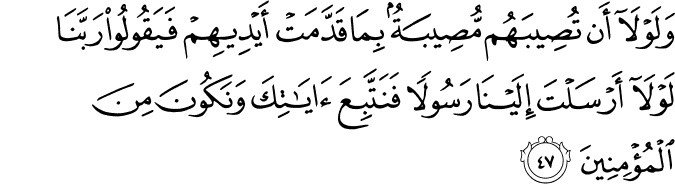 وَلَوْلَآ أَن تُصِيبَهُم مُّصِيبَةٌۢ بِمَا قَدَّمَتْ أَيْدِيهِمْ فَيَقُولُوا۟ رَبَّنَا
لَوْلَآ أَرْسَلْتَ إِلَيْنَا رَسُولًا فَنَتَّبِعَ ءَايَـٰتِكَ وَنَكُونَ مِنَ
ٱلْمُؤْمِنِينَ ٤٧